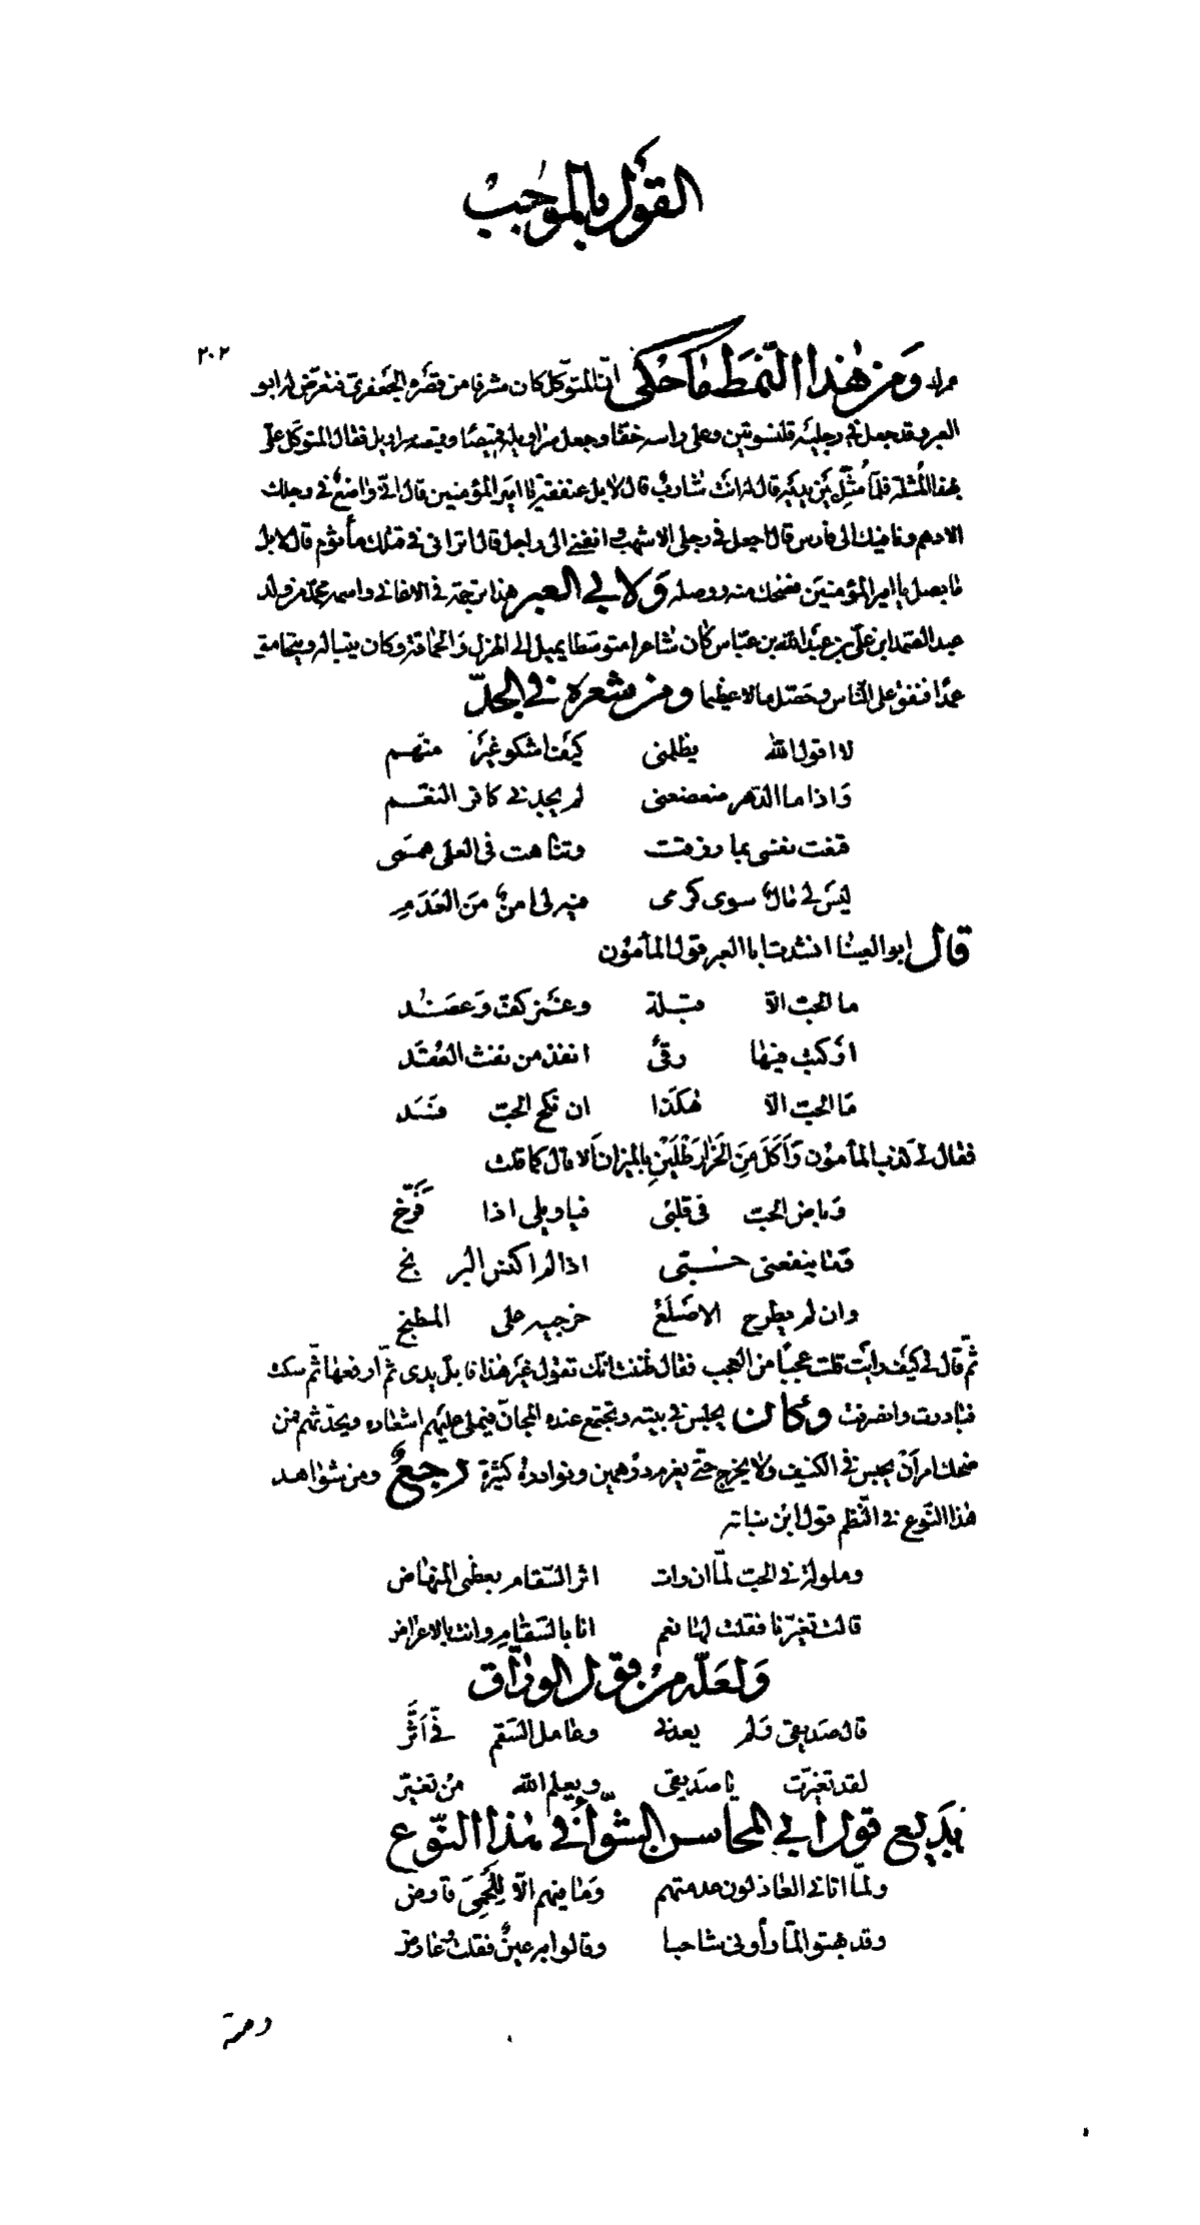 القول بالموجب
٢٠٢
مراد ومن هذا النمط ما حكى ان المتوكل كان مشرفا من قصره الجعفري فتعرض له ابو
العبر وقد جعل في رجليه قلنسوتين وعلى راسه خفا وجعل سراويله قميصا وقميصه سراويل فقال المتوكل علي
بهذا المثلة فلما مثل بين يديه قال له انت شارب قال لا بل عنفقة يا امير المؤمنين قال اني واضع في رجلك
الادهم ونافيك الى فارس قال اجعل في رجلي الاشهب وانفني الى راجل قال اتراني في قتلك مأثوم قال لا بل
ما بصل يا امير المؤمنين فضحك منه ووصله ولابي العبر هذا ترجمة في الاغاني واسمه محمد من ولد
عبد الصمد ابن علي بن عبد الله بن عباس كان شاعرا متوسطا يميل الى الهزل والحماقة وكان يتباله ويتحامق
عمدا فنفق على الناس وحصل مالا عظيما ومن شعره في الجد
لا اقول الله يظلمنى كيف اشكو غير متهم
واذا ما الدهر ضعضعنى لم يجدني كافر النعم
قنعت نفسى بما رزقت وتناهت في العلى هممى
ليس لي مال سوى كرمى فيه لى امن من العدم
قال ابو العينا انشدت ابا العبر قول المأمون
ما الحب الا قبلة وغمز كف وعضد
او كتب فيها رقى انفذ من نفث العقد
ما الحب الا هكذا ان نكح الحب فسد
فقال لي كذب المأمون وأكل من الخرا رطلين بالميزان الا قال كما قلت
وباض الحب في قلبى فيا ويلى اذا فرخ
وما ينفعنى حبى اذا لم اكنس البر بخ
وان لم يطرح الاصلع خرجيه على المطبخ
ثم قال لي كيف رايت قلت عجبا من العجب فقال ظننت انك تقول غير هذا فابل يدى ثم ارفعها ثم سكت
فبادرت وانصرفت وكان يجلس في بيته وتجتمع عنده المجان فيملى عليهم اشعاره ويحدثهم فمن
ضحك امر ان يحبس في الكنيف ولا يخرج حتى يغرم درهمين ونوادره كثيرة رجع ومن شواهد
هذا النوع في النظم قول ابن نباته
وملولة في الحب لما ان رات اثر السقام بعظمى المنهاض
قالت تغيرنا فقلت لها نعم انا بالسقام وانت بالاعراض
ولعله من قول الوراق
قال صديقى ولم يعدني وعامل السقم في اثر
لقد تغيرت يا صديقى ويعلم الله من تغير
بديع قول ابي المحاسن الشوا في هذا النوع
ولما اتاني العاذلون عدمتهم وما فيهم الا للحمى قارض
وقد بهتوا لما رأوني شاحبا وقالوا به عين فقلت وعارض